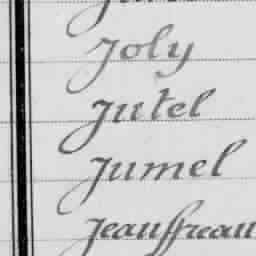 Joly
Jutel
Jumel
Jeauffreau